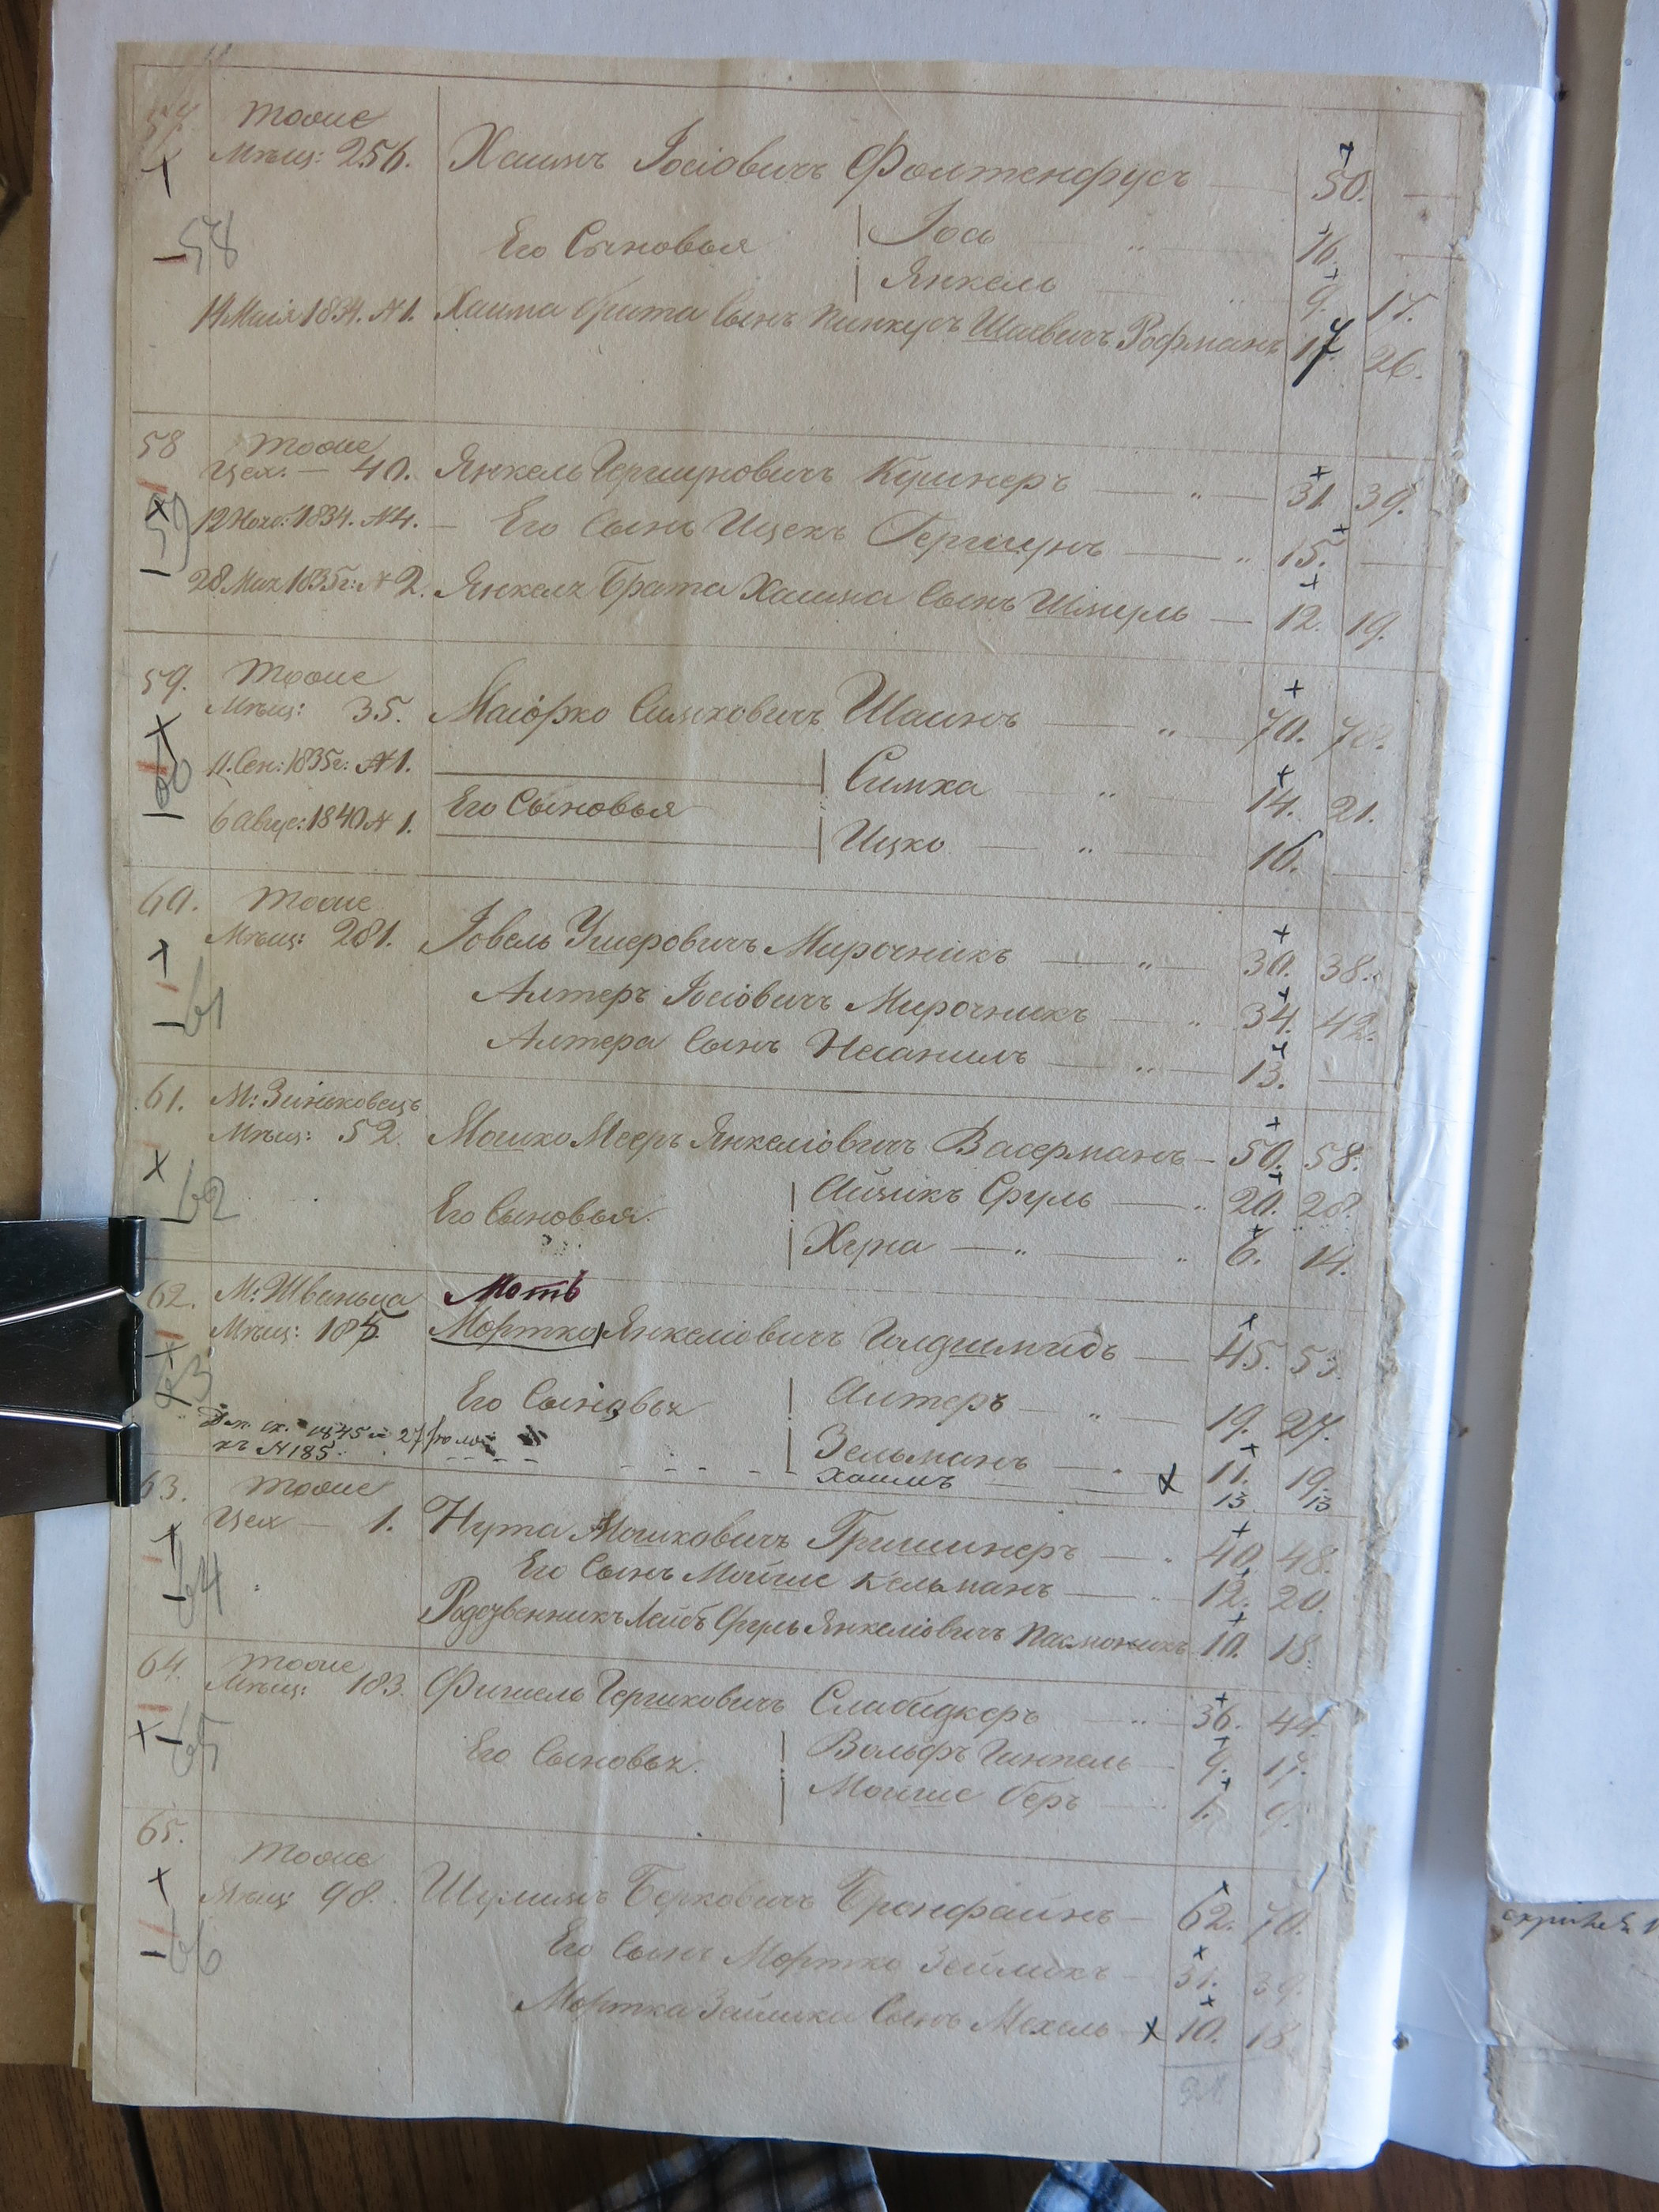 57. тоже
Мѣщ: 256. Хаимъ Іосіовичъ Фоитенфусъ — 50. —
58
Его Сыновья Іось „ 16. —
Янкель 9. 17.
14 Маія 1834. №1. Хаима брата Сынъ Пинкусъ Шаевичъ Рофманъ 17. 26.
58 тоже
Цех. — 40. Янкель Гершуновичъ Кушнеръ — „ — 31. 39.
59
12 Ноя: 1834. №4. — Его Сынъ Ицекъ Гершунъ — „ 15. —
28 Мая 1835г: №2. Янкеля Брата Хаима Сынъ Шмуль — 12. 19.
59. тоже
Мѣщ: 35. Маіорко Симховичъ Шаинъ — „ 70. 78.
60
11. Сен: 1835г: №1. Симха — „ — 14. 21.
Его Сыновья
6 Авгус: 1840 №1. Ицко — „ — 10. —
60. тоже
Мѣщ: 281. Іовель Ушеровичъ Мирочникъ — „ — 30. 38.
61
Алтеръ Іосіовичъ Мирочникъ — „ 34. 42.
Алтера Сынъ Несанилъ — „ — 13. —
61. М: Зиньковецъ
Мѣщ: 52. Мошко Мееръ Янкеліовичъ Васерманъ — 50. 58.
62
Его Сыновья Айзикъ Сруль — „ 20. 28.
Хуна — „ — „ 6. 14.
62. М: Жваньца Моть
Мѣщ: 185. Мортко Янкеліовичъ Голдшмидъ — 45. 53.
63
Его Сыновья Алтеръ — „ — 19. 27.
Зельманъ — 11. 19.
Доп. ск. 1845 г. 27 Іюля
къ №185. Хаимъ 13 13
63. тоже
Цех — 1. Нута Мошковичъ Гришнеръ — „ 40. 48.
64
Его Сынъ Мойше Кельманъ — „ 12. 20.
Родственникъ Лейбъ Сруль Янкеліовичъ Пасмоникъ 10. 18.
64. тоже
Мѣщ: 183. Фишель Гершковичъ Слабидкеръ — „ — 36. 44.
65
Его Сыновья. Вольфъ Гимпель — 9. 17.
Мошше Беръ — 1. 9.
65. тоже
Мѣщ: 98. Шулимъ Берковичъ Бронфаинъ — 62. 70.
66
Его Сынъ Мортко Зейликъ — 31. 39.
Мортка Зейлика Сынъ Мехель — 10. 18